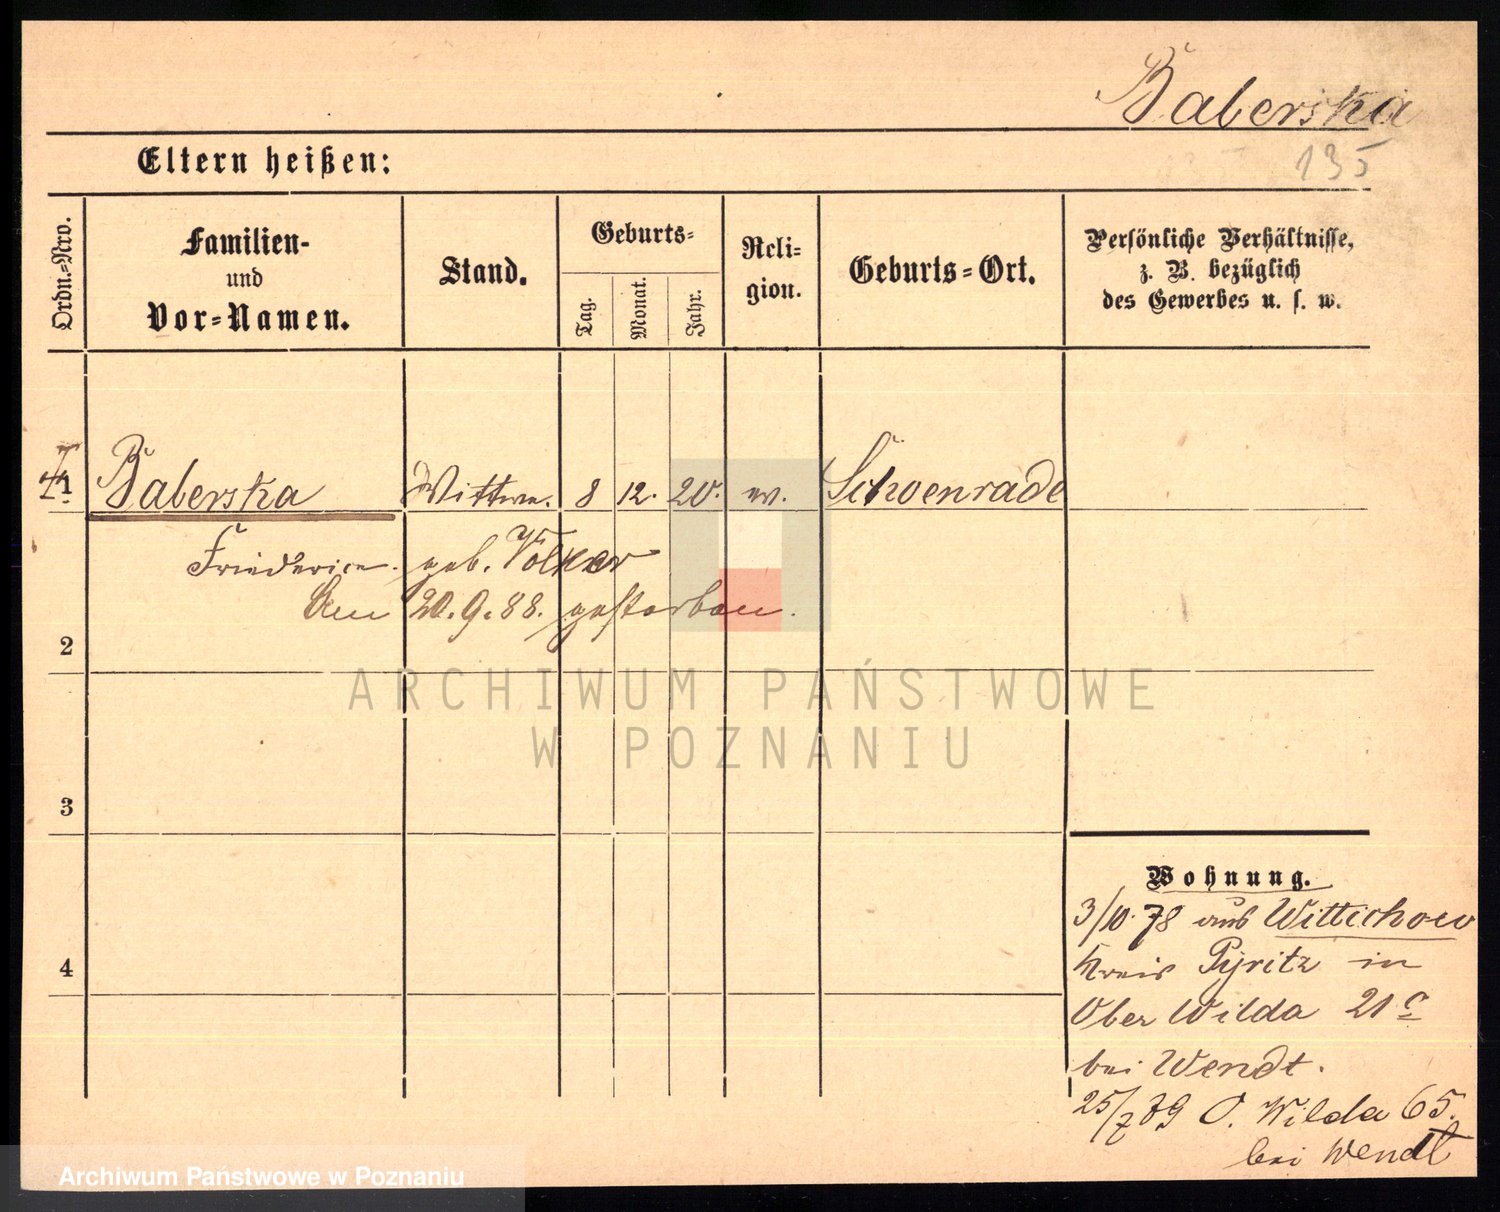 Baberska
135
Eltern heißen:
Ordn.-Nro.
Familien-
und
Vor-Namen.
Stand.
Geburts-
Tag.
Monat.
Jahr.
Reli-
gion.
Geburts-Ort.
Persönliche Verhältnisse,
z. B. bezüglich
des Gewerbes u. s. w.
1 Baberska Wittwe. 8 12. 20. ev. Schoenrade
Friederice geb. Völker
Am 20.9.88. gestorben.
2
3
4
Wohnung.
3/10.78 aus Wittichow
Kreis Pyritz in
Ober Wilda 21c
bei Wendt.
25/7 79 O. Wilda 65.
bei Wendt
ARCHIWUM PAŃSTWOWE
W POZNANIU
Archiwum Państwowe w Poznaniu